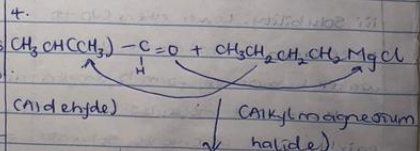 4.
CH3 CHCCH3) - C = O + CH3CH2CH2CH2MgCl
H
(Aldehyde) (Alkylmagnesium
halide)